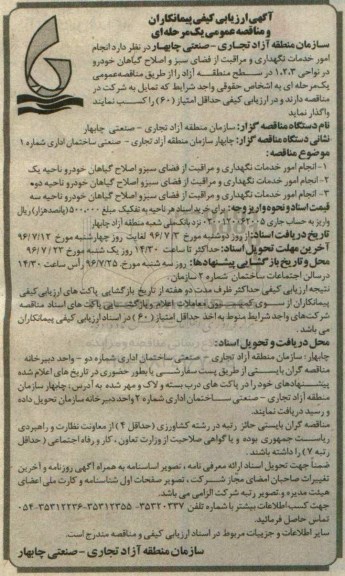 آگهی ارزیابی کیفی پیمانکاران
و مناقصه عمومی یک مرحله ای
سازمان منطقه آزاد تجاری - صنعتی چابهار در نظر دارد انجام
امور خدمات نگهداری و مراقبت از فضای سبز و اصلاح گیاهان خودرو
در نواحی ۱،۲،۳ در سطح منطقه آزاد را از طریق مناقصه عمومی
یک مرحله ای به اشخاص حقوقی واجد شرایط که تمایل به شرکت در
مناقصه دارند و در ارزیابی کیفی حداقل امتیاز (۶۰) را کسب نمایند
واگذار نماید
نام دستگاه مناقصه گزار: سازمان منطقه آزاد تجاری - صنعتی چابهار
نشانی دستگاه مناقصه گزار: چابهار سازمان منطقه آزاد تجاری - صنعتی ساختمان اداری شماره ۱
موضوع مناقصه:
۱- انجام امور خدمات نگهداری و مراقبت از فضای سبز و اصلاح گیاهان خودرو ناحیه یک
۲- انجام امور خدمات نگهداری و مراقبت از فضای سبز و اصلاح گیاهان خودرو ناحیه دو
۳- انجام امور خدمات نگهداری و مراقبت از فضای سبز و اصلاح گیاهان خودرو ناحیه سه
قیمت اسناد و نحوه واریز وجه: برای خرید اسناد هر ناحیه به تفکیک مبلغ ۵۰۰،۰۰۰ (پانصدهزار) ریال
واریز به حساب جاری نزد بانک ملی شعبه منطقه آزاد چابهار
تاریخ دریافت اسناد: از روز دوشنبه مورخ ۹۶/۷/۳ لغایت روز چهارشنبه مورخ ۹۶/۷/۱۲
آخرین مهلت تحویل اسناد: حداکثر تا ساعت ۱۴:۳۰ روز یک شنبه مورخ ۹۶/۷/۲۳
محل و تاریخ بازگشایی پیشنهادها: روز سه شنبه مورخ ۹۶/۷/۲۵ رأس ساعت ۱۴:۳۰
در سالن اجتماعات ساختمان شماره ۲ سازمان.
نتیجه ارزیابی کیفی حداکثر ظرف مدت دو هفته از تاریخ بازگشایی پاکت های ارزیابی کیفی
پیمانکاران از سوی کمیسیون معاملات اعلام و بازگشایی پاکت های اسناد مناقصه
شرکت های واجد شرایط منوط به اخذ حداقل امتیاز (۶۰) در اسناد ارزیابی کیفی پیمانکاران
می باشد.
محل دریافت و تحویل اسناد:
چابهار: سازمان منطقه آزاد تجاری - صنعتی ساختمان اداری شماره دو - واحد دبیرخانه
مناقصه گران بایستی از طریق پست سفارشی یا بطور حضوری در تاریخ های اعلام شده
پیشنهادهای خود را در پاکت های درب بسته و لاک و مهر شده به آدرس: چابهار سازمان
منطقه آزاد تجاری - صنعتی ساختمان اداری شماره ۲ واحد دبیرخانه سازمان تحویل داده
و رسید دریافت نمایند.
مناقصه گران بایستی حائز رتبه در رشته کشاورزی (حداقل ۴) از معاونت نظارت و راهبردی
ریاست جمهوری بوده و یا گواهی صلاحیت از وزارت تعاون، کار و رفاه اجتماعی (حداقل
رتبه ۷) را داشته باشند.
ضمناً جهت تحویل اسناد ارائه معرفی نامه، تصویر اساسنامه به همراه آگهی روزنامه و آخرین
تغییرات صاحبان امضای مجاز شرکت، تصویر صفحات اول شناسنامه و کارت ملی اعضای
هیئت مدیره و تصویر رتبه شرکت الزامی می باشد.
جهت کسب اطلاعات بیشتر با شماره تلفن ۳۵۳۲۰۳۳۷-۳۵۳۱۲۳۵۵-۳۵۳۱۲۲۳۶-۰۵۴
تماس حاصل فرمائید.
سایر اطلاعات و جزییات مربوط در اسناد ارزیابی کیفی و مناقصه مندرج است.
سازمان منطقه آزاد تجاری - صنعتی چابهار